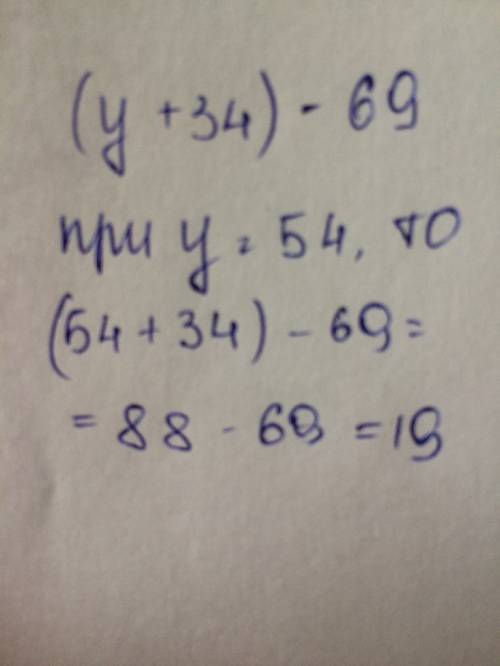 (у + 34) - 69
при у = 54, то
(54 + 34) - 69 =
= 88 - 69 = 19